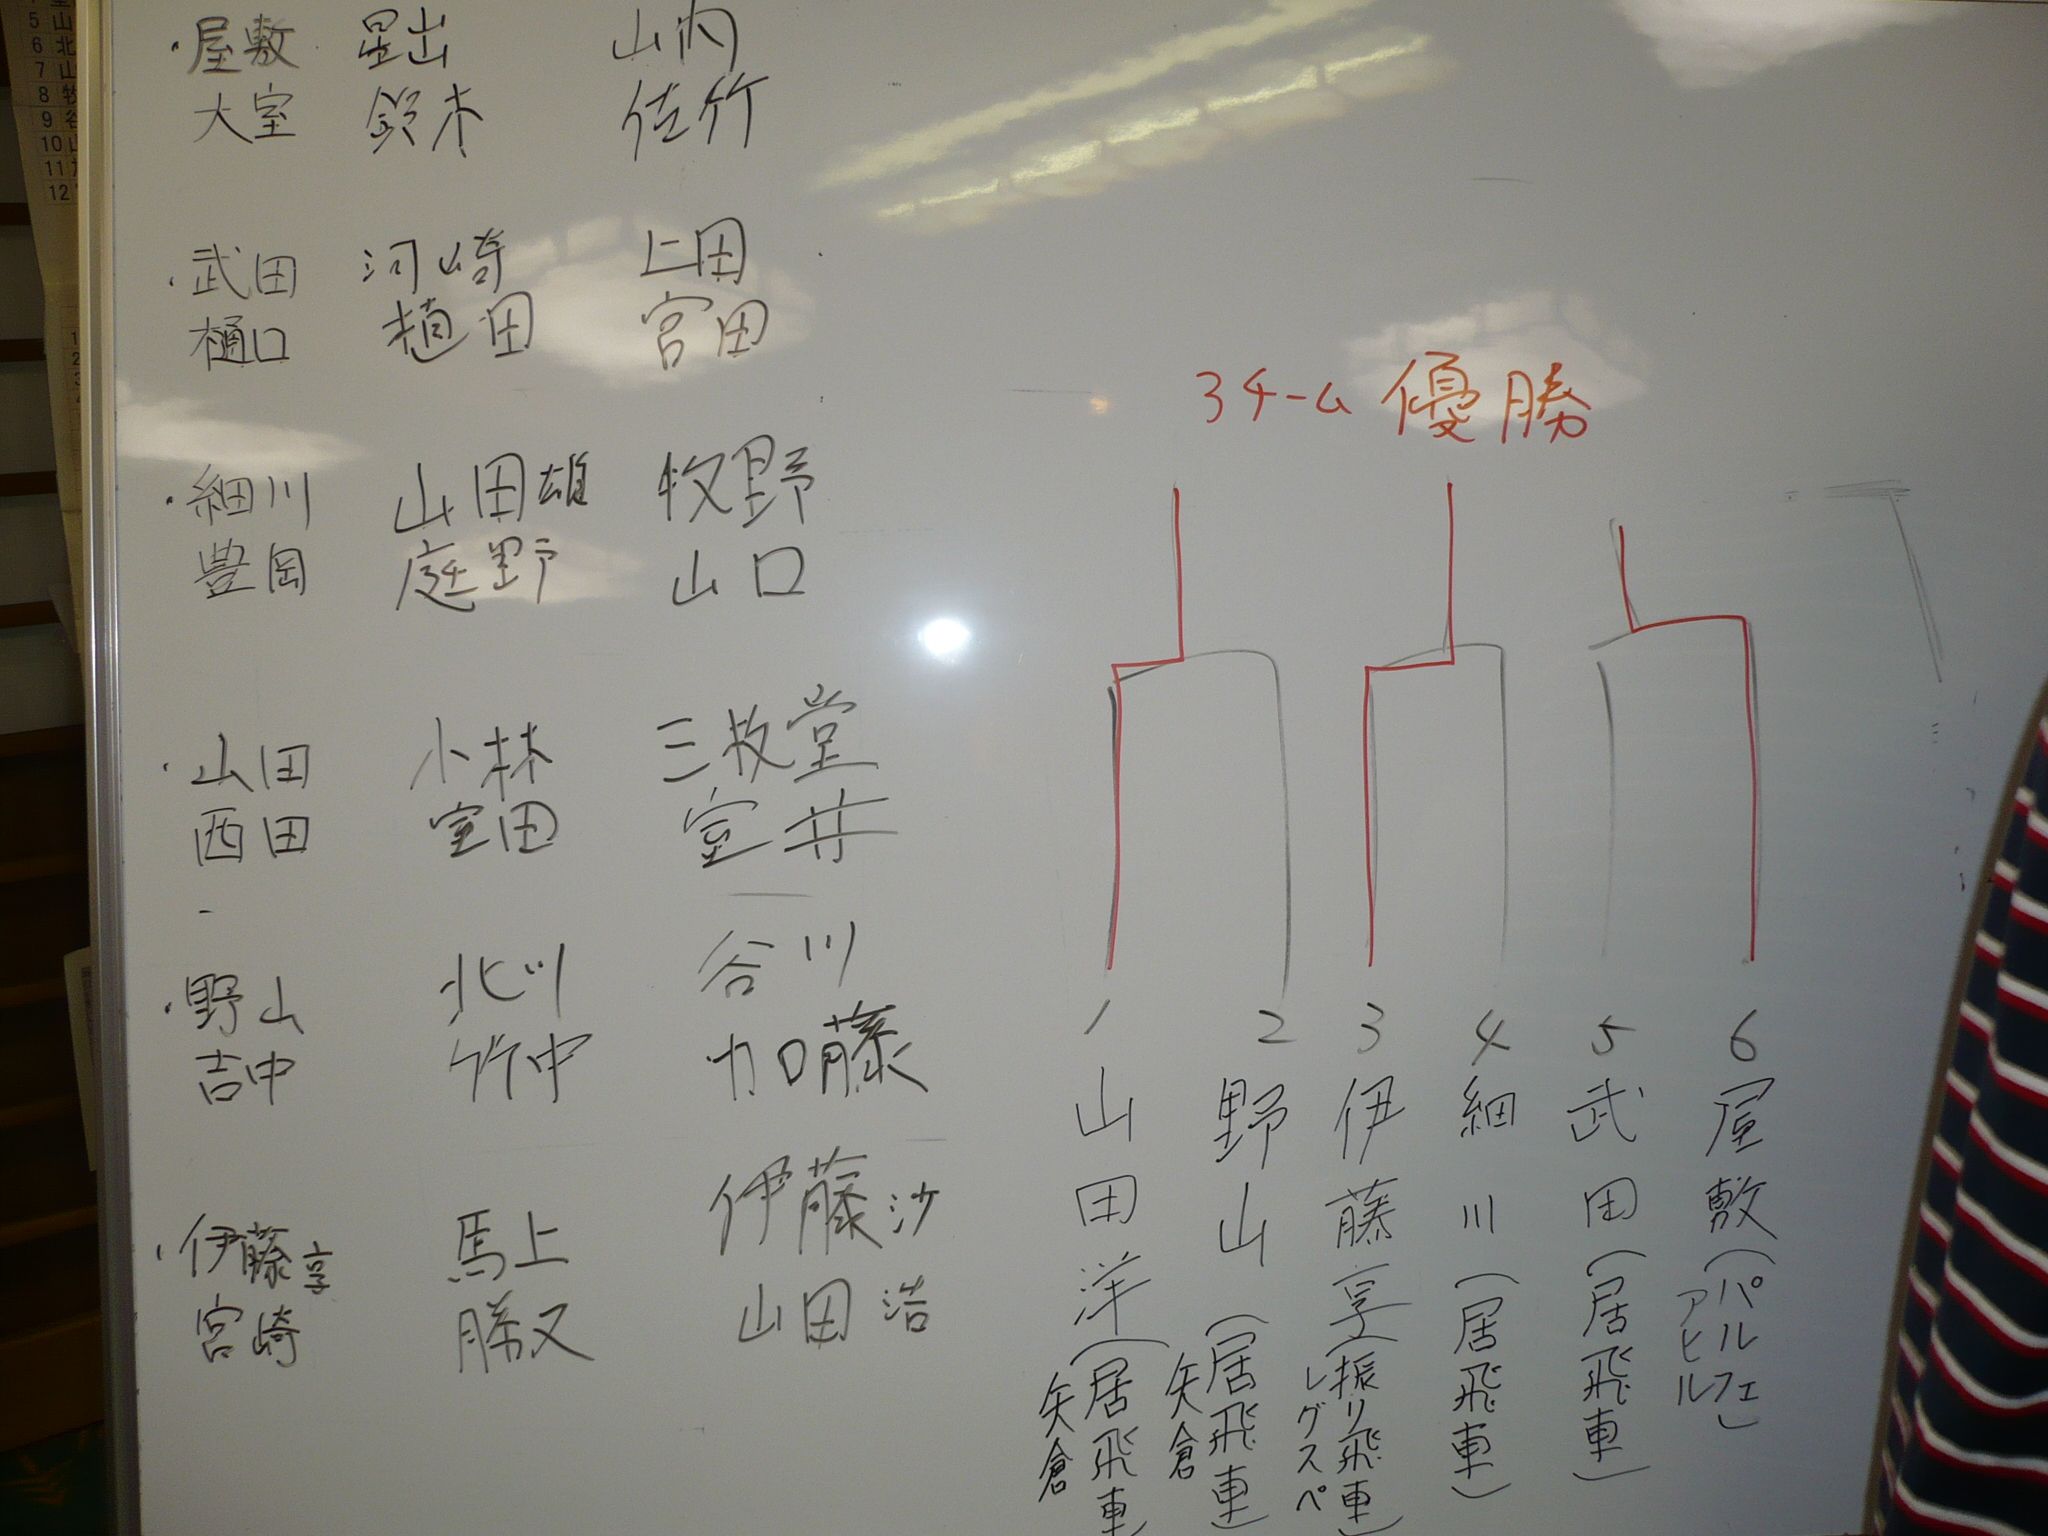 ・屋敷 星出 山内
大室 鈴木 佐竹
・武田 河崎 上田
樋口 植田 宮田
・細川 山田雄 牧野
豊岡 庭野 山口
・山田 小林 三枚堂
西田 室田 室井
・野山 北川 谷川
吉中 竹中 加藤
・伊藤享 馬上 伊藤沙
宮崎 勝又 山田浩
3チーム優勝
1 山田洋(居飛車
矢倉
2 野山(居飛車)
矢倉
3 伊藤享(振り飛車)
レグスペ
4 細川(居飛車)
5 武田(居飛車)
6 屋敷(パルフェ)
アヒル
5 山
6 北
7 山
8 牧
9 谷
10 山
11
12